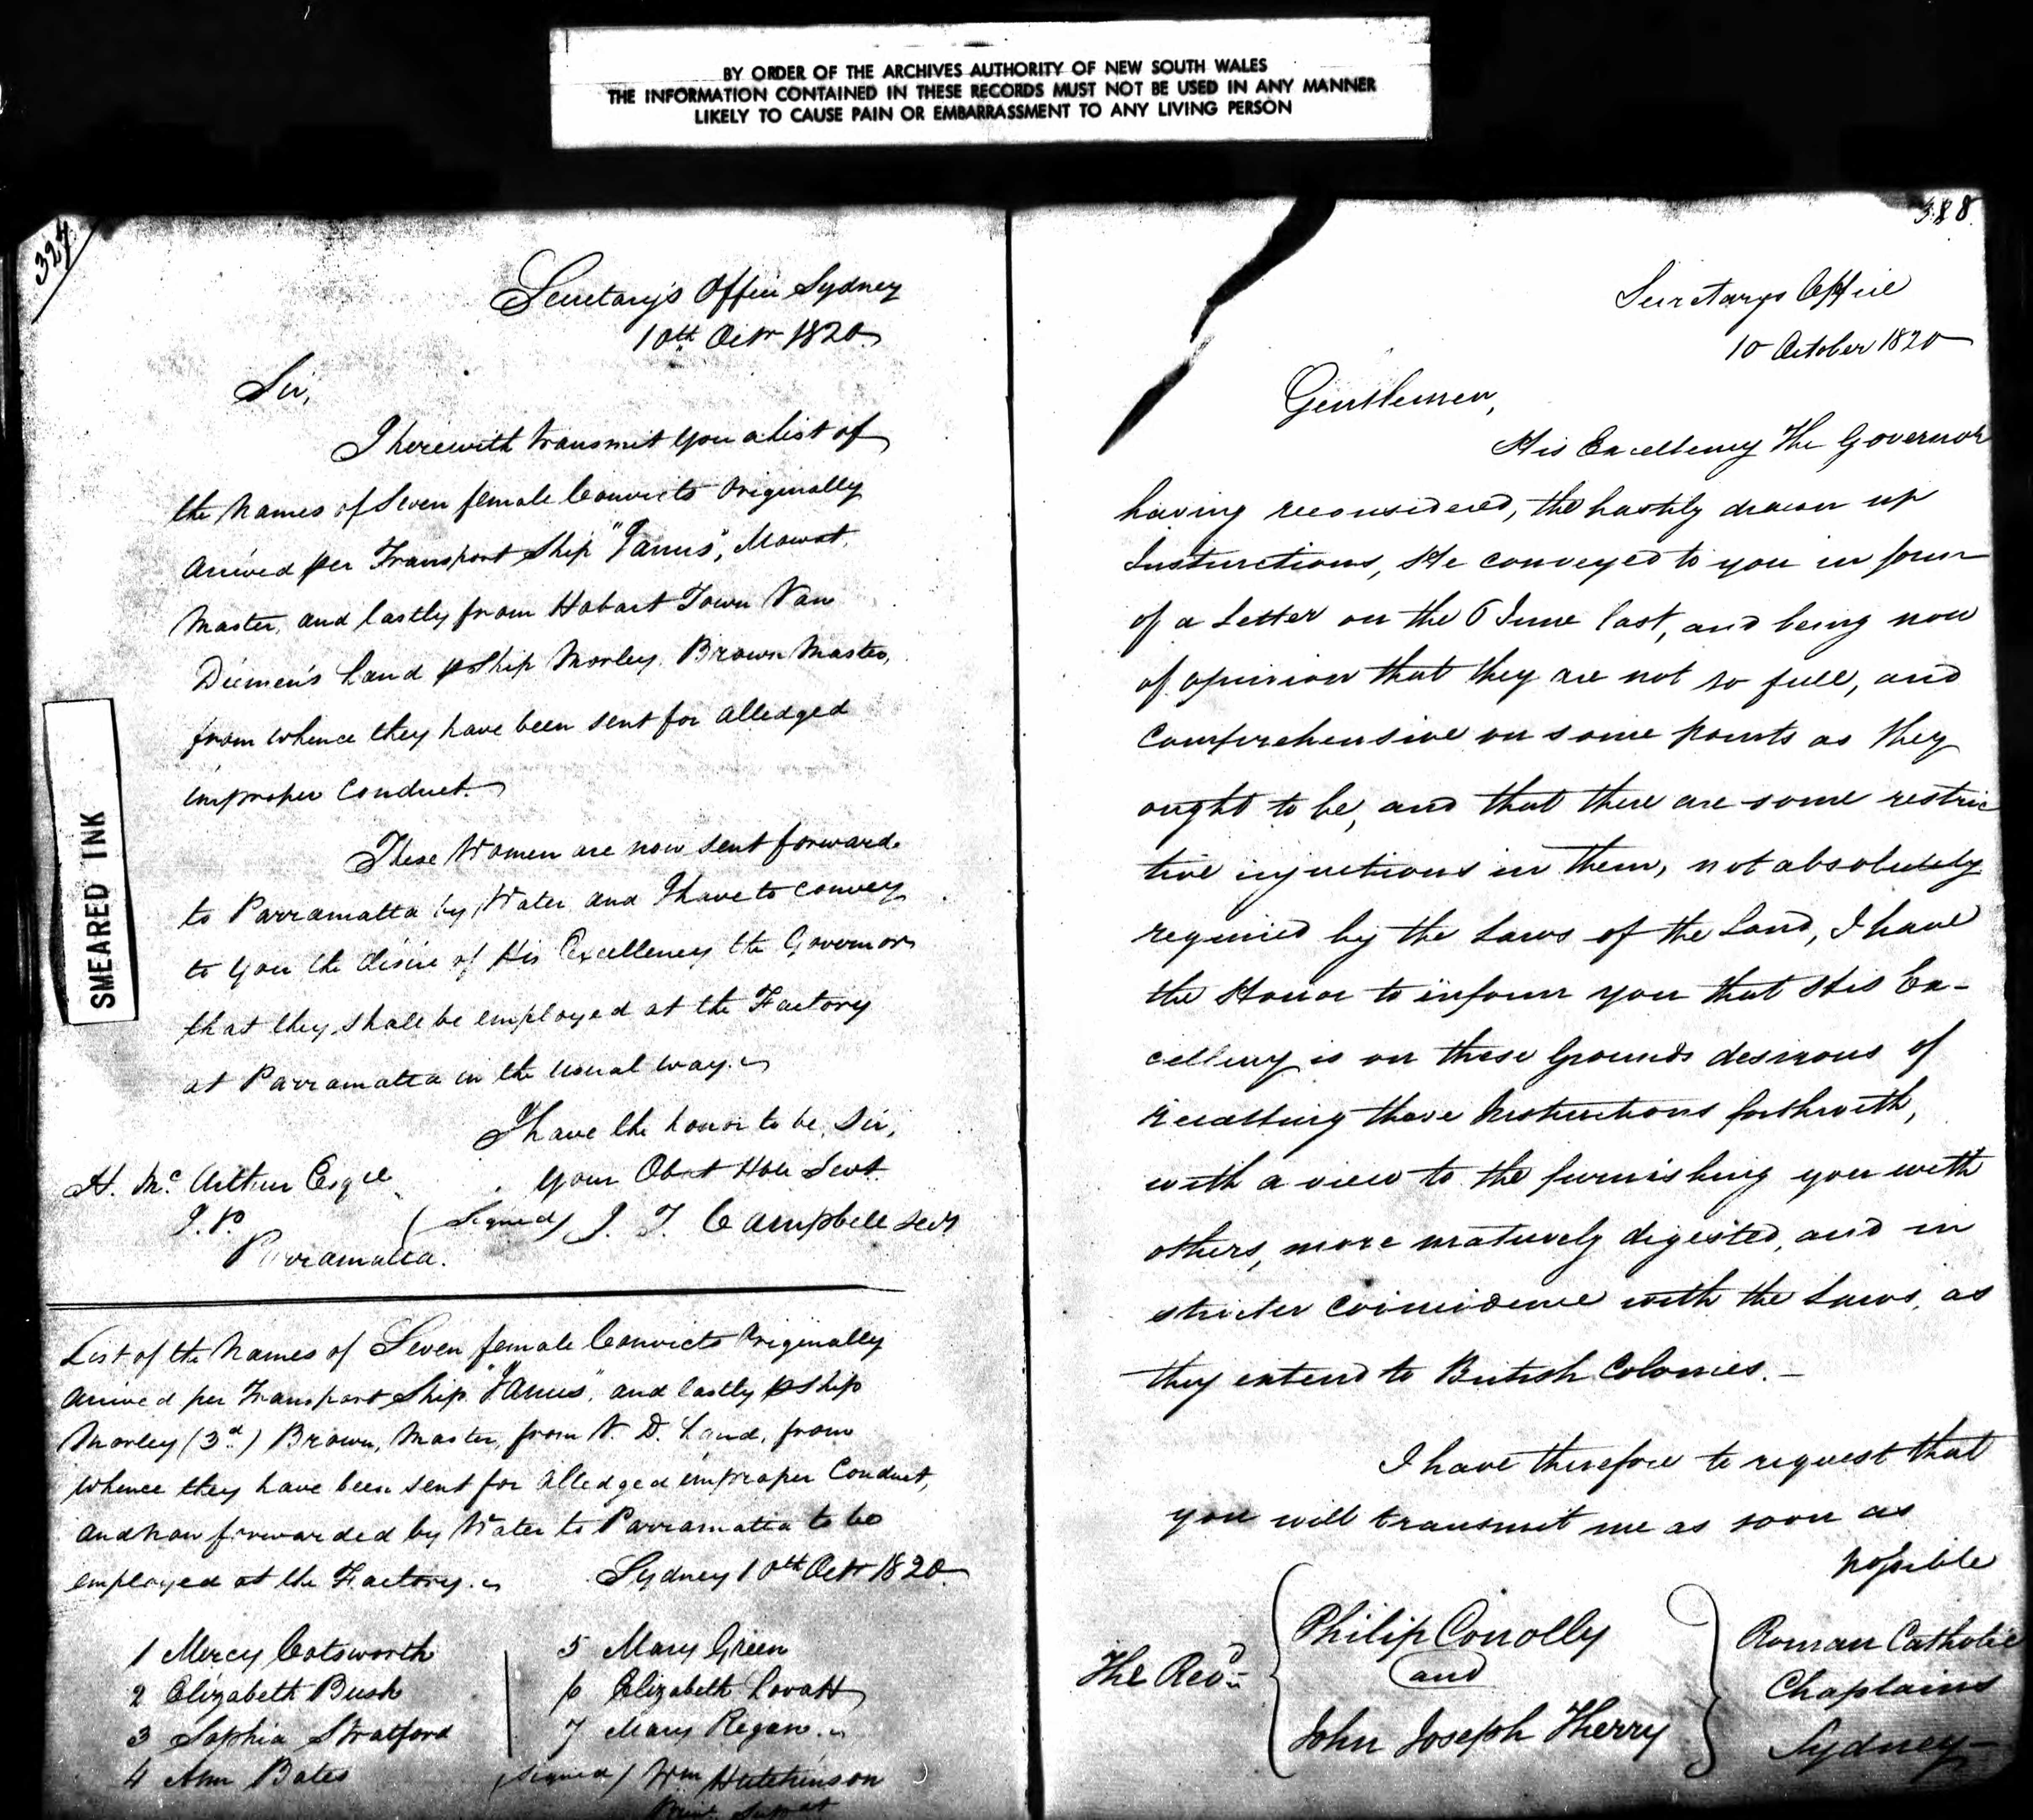 BY ORDER OF THE ARCHIVES AUTHORITY OF NEW SOUTH WALES
THE INFORMATION CONTAINED IN THESE RECORDS MUST NOT BE USED IN ANY MANNER
LIKELY TO CAUSE PAIN OR EMBARRASSMENT TO ANY LIVING PERSON
327
Secretary's Office Sydney
10th Octr 1820
Sir,
I herewith transmit you a list of
the Names of Seven female Convicts Originally
arrived per Transport Ship "Janus", Mowat,
Master, and lastly from Hobart Town Van
Diemen's Land p Ship Morley, Brown Master,
from whence they have been sent for alledged
improper Conduct.
These Women are now sent forward
to Parramatta by Water and I have to convey
to you the desire of His Excellency the Governor
that they shall be employed at the Factory
at Parramatta in the usual way.
I have the honor to be, Sir,
Your Obdt Hble Servt
H. Mc. Arthur Esqre
J.P.
Parramatta.
(Signed) J. T. Campbell Secy
SMEARED INK
List of the Names of Seven female Convicts Originally
arrived per Transport Ship "Janus", and lastly p Ship
Morley (3d.) Brown, Master, from V. D. Land, from
whence they have been sent for alledged improper Conduct,
and now forwarded by Water to Parramatta to be
employed at the Factory.
Sydney 10th Octr 1820
1 Mercy Cotsworth
2 Elizabeth Bush
3 Sophia Stratford
4 Ann Bates
5 Mary Green
6 Elizabeth Lovatt
7 Mary Regan
(Signed) Wm Hutchinson
328
Secretarys Office
10 October 1820
Gentlemen,
His Excellency The Governor
having reconsidered, the hastily drawn up
Instructions, He conveyed to you in form
of a Letter on the 6 June last, and being now
of opinion that they are not so full, and
comprehensive on some points as they
ought to be, and that there are some restric
tive injuctions in them, not absolutely
required by the Laws of the Land, I have
the Honor to inform you that His Ex-
cellency is on these Grounds desirous of
recalling those Instructions forthwith,
with a view to the furnishing you with
others, more maturely digested, and in
stricter coincidence with the Laws, as
they extend to British Colonies.
I have therefore to request that
you will transmit me as soon as
possible
The Revd.
Philip Conolly
and
John Joseph Therry
Roman Catholic
Chaplains
Sydney